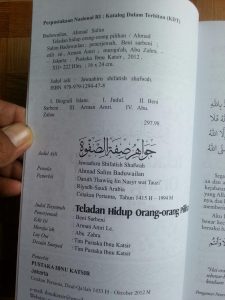 Perpustakaan Nasional RI : Katalog Dalam Terbitan (KDT)
Baduwailan, Ahmad Salim
Teladan hidup orang-orang pilihan / Ahmad
Salim Baduwailan ; penerjemah, Beni Sarbeni ;
edit isi, Arman Amri ; muraja'ah, Abu Zahra.
Jakarta : Pustaka Ibnu Katsir, 2012.
XII+ 222 hlm ; 16 x 24 cm.
Judul asli : Jawaahiru shifatish shafwah.
ISBN 978-979-1294-47-8
1. Biografi Islam. I. Judul. II. Beni
Sarbeni. III. Arman Amri. IV. Abu
Zahra.
297.98
جواهر صفة الصفوة
Judul Asli
Jawaahiru Shifatish Shafwah
Penulis
Ahmad Salim Baduwailan
Penerbit
Daruth Thawiiq lin Nasyr wat Tauzi'
Riyadh-Saudi Arabia
Cetakan Pertama, Tahun 1415 H - 1994 M
Judul Terjemah
Teladan Hidup Orang-orang Pilihan
Penerjemah
Beni Sarbeni
Edit Isi
Arman Amri Lc.
Muraja'ah
Abu Zahra
Lay Out
Tim Pustaka Ibnu Katsir
Desain Sampul
Tim Pustaka Ibnu Katsir
Penerbit
PUSTAKA IBNU KATSIR
Jakarta
Cetakan Pertama, Dzul-Qa'dah 1433 H - Oktober 2012 M